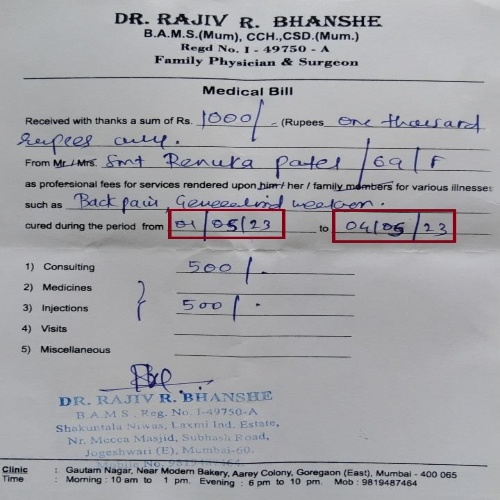 DR. RAJIV R. BHANSHE
B.A.M.S.(Mum), CCH.,CSD.(Mum.)
Regd No. I - 49750 - A
Family Physician & Surgeon
Medical Bill
Received with thanks a sum of Rs. 1000/ (Rupees one thousand
rupees only.
From Mr / Mrs. Smt Renuka Patel / 69 / F
as professional fees for services rendered upon him / her / family members for various illnesses
such as Back pain,
cured during the period from 01/05/23 to 04/05/23
1) Consulting 500/.
2) Medicines
3) Injections 500/.
4) Visits
5) Miscellaneous
DR. RAJIV R. BHANSHE
B.A.M.S. Reg. No. I-49750-A
Shakuntala Niwas, Laxmi Ind. Estate,
Nr. Mecca Masjid, Subhash Road,
Jogeshwari (E), Mumbai-60.
Mobile No. 9819487464
Clinic : Gautam Nagar, Near Modern Bakery, Aarey Colony, Goregaon (East), Mumbai - 400 065
Time : Morning : 10 am to 1 pm. Evening : 6 pm to 10 pm. Mob : 9819487464